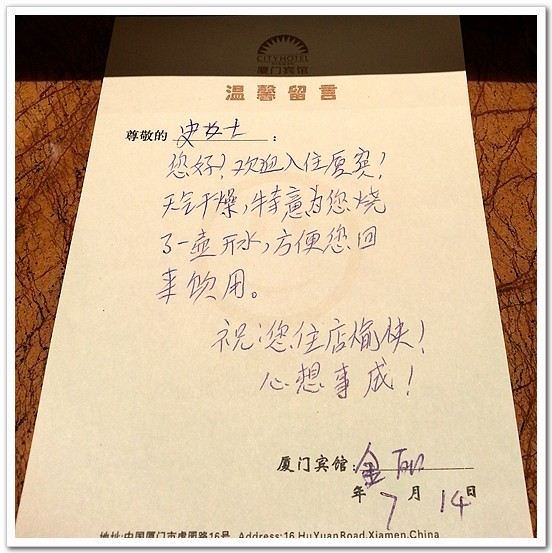 CITYHOTEL
厦门宾馆
温馨留言
尊敬的 史女士 :
您好!欢迎入住厦宾!
天气干燥,特意为您烧
了一壶开水,方便您回
来饮用。
祝:您住店愉快!
心想事成!
厦门宾馆:金
年 7 月 14 日
地址:中国厦门市虎园路16号 Address:16 HuYuanRoad,Xiamen,China